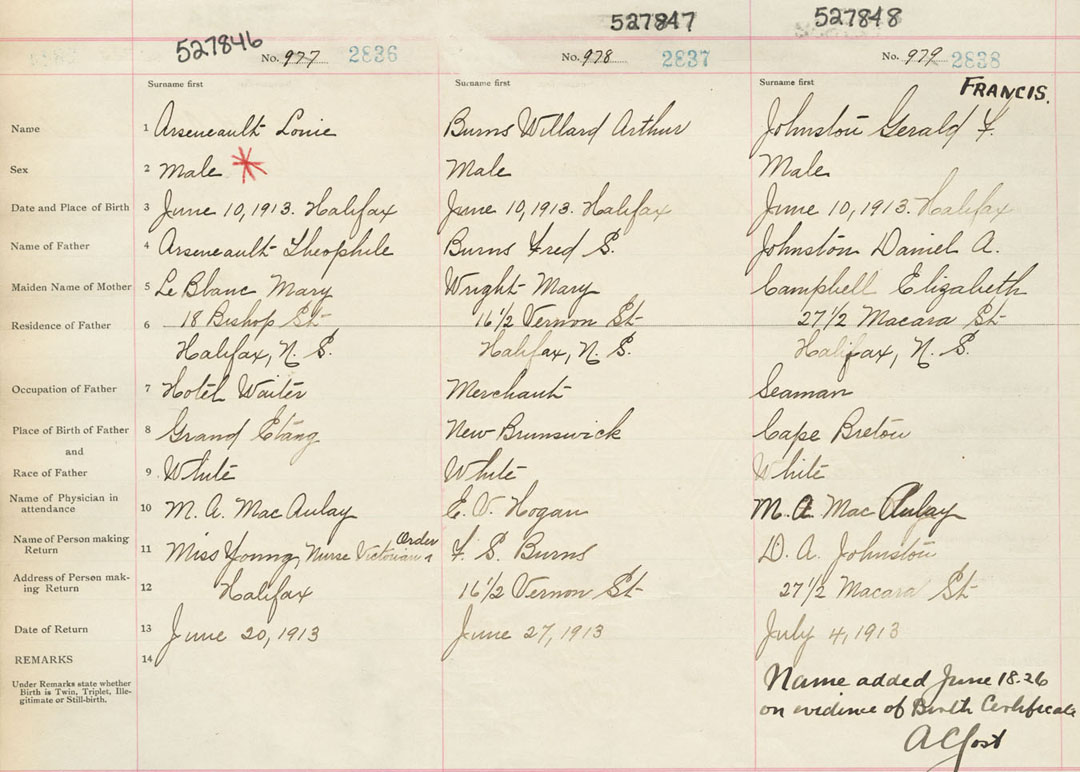 527846 527847 527848
No. 977 2836 No. 978 2837 No. 979 2838
Surname first Surname first Surname first FRANCIS.
Name 1 Arseneault Louie Burns Willard Arthur Johnston Gerald F.
Sex 2 Male Male Male
Date and Place of Birth 3 June 10, 1913. Halifax June 10, 1913. Halifax June 10, 1913. Halifax
Name of Father 4 Arseneault Theophile Burns Fred S. Johnston Daniel A.
Maiden Name of Mother 5 Le Blanc Mary Wright Mary Campbell Elizabeth
Residence of Father 6 18 Bishop St 16 1/2 Vernon St 27 1/2 Macara St
Halifax, N. S. Halifax, N. S. Halifax, N. S.
Occupation of Father 7 Hotel Waiter Merchant Seaman
Place of Birth of Father 8 Grand Etang New Brunswick Cape Breton
and
Race of Father 9 White White White
Name of Physician in
attendance 10 M. A. Mac Aulay E. V. Hogan M. A Mac Aulay
Name of Person making
Return 11 Miss Young, Nurse Victorian Order F. S. Burns D. A. Johnston
Address of Person mak-
ing Return 12 Halifax 16 1/2 Vernon St 27 1/2 Macara St
Date of Return 13 June 20, 1913 June 27, 1913 July 4, 1913
REMARKS 14
Under Remarks state whether
Birth is Twin, Triplet, Ille-
gitimate or Still-birth.
Name added June 18-26
on evidence of Birth Certificate
A C Jost